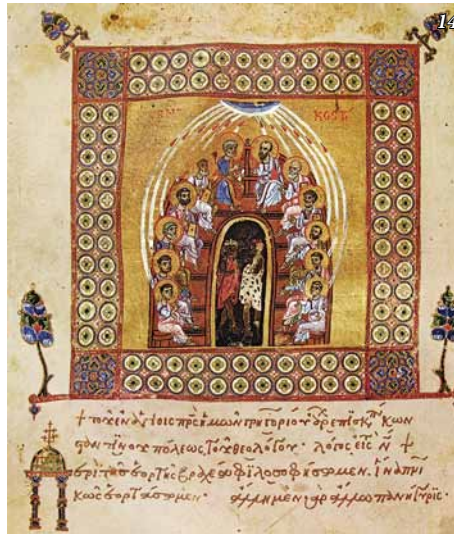 14
ΚΟCΤΗ
+ τοῦ ἐν ἁγίοις πρς ἡμῶν γρηγορίου ἀρχεπισκπ κων
σταντίνου πόλεως τοῦ θεολόγου· λόγος εἰς ν̄ +
περὶ τῆς ἑορτῆς βραχέα φιλοσοφήσωμεν· ἵνα πνι
κῶς ἑορτάσωμεν· ἄλλη μὲν γὰρ ἄλλω πανήγυρις·